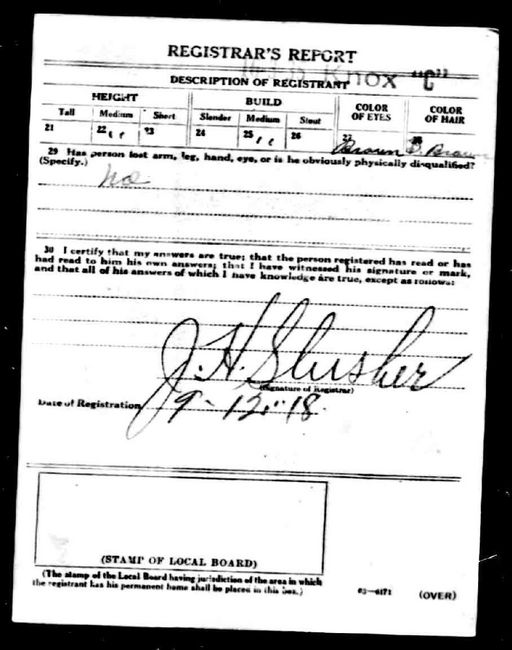 REGISTRAR'S REPORT
Knox "C"
DESCRIPTION OF REGISTRANT
HEIGHT BUILD COLOR OF EYES COLOR OF HAIR
Tall Medium Short Slender Medium Stout
21 22 ,, 23 24 25 ,, 26 27 Brown 28 D. Brown
29 Has person lost arm, leg, hand, eye, or is he obviously physically disqualified?
(Specify.) No
30 I certify that my answers are true; that the person registered has read or has
had read to him his own answers; that I have witnessed his signature or mark,
and that all of his answers of which I have knowledge are true, except as follows:
J. H. Slusher
(Signature of Registrar)
Date of Registration 9-12-18
(STAMP OF LOCAL BOARD)
(The stamp of the Local Board having jurisdiction of the area in which
the registrant has his permanent home shall be placed in this box.)
03—6171 (OVER)